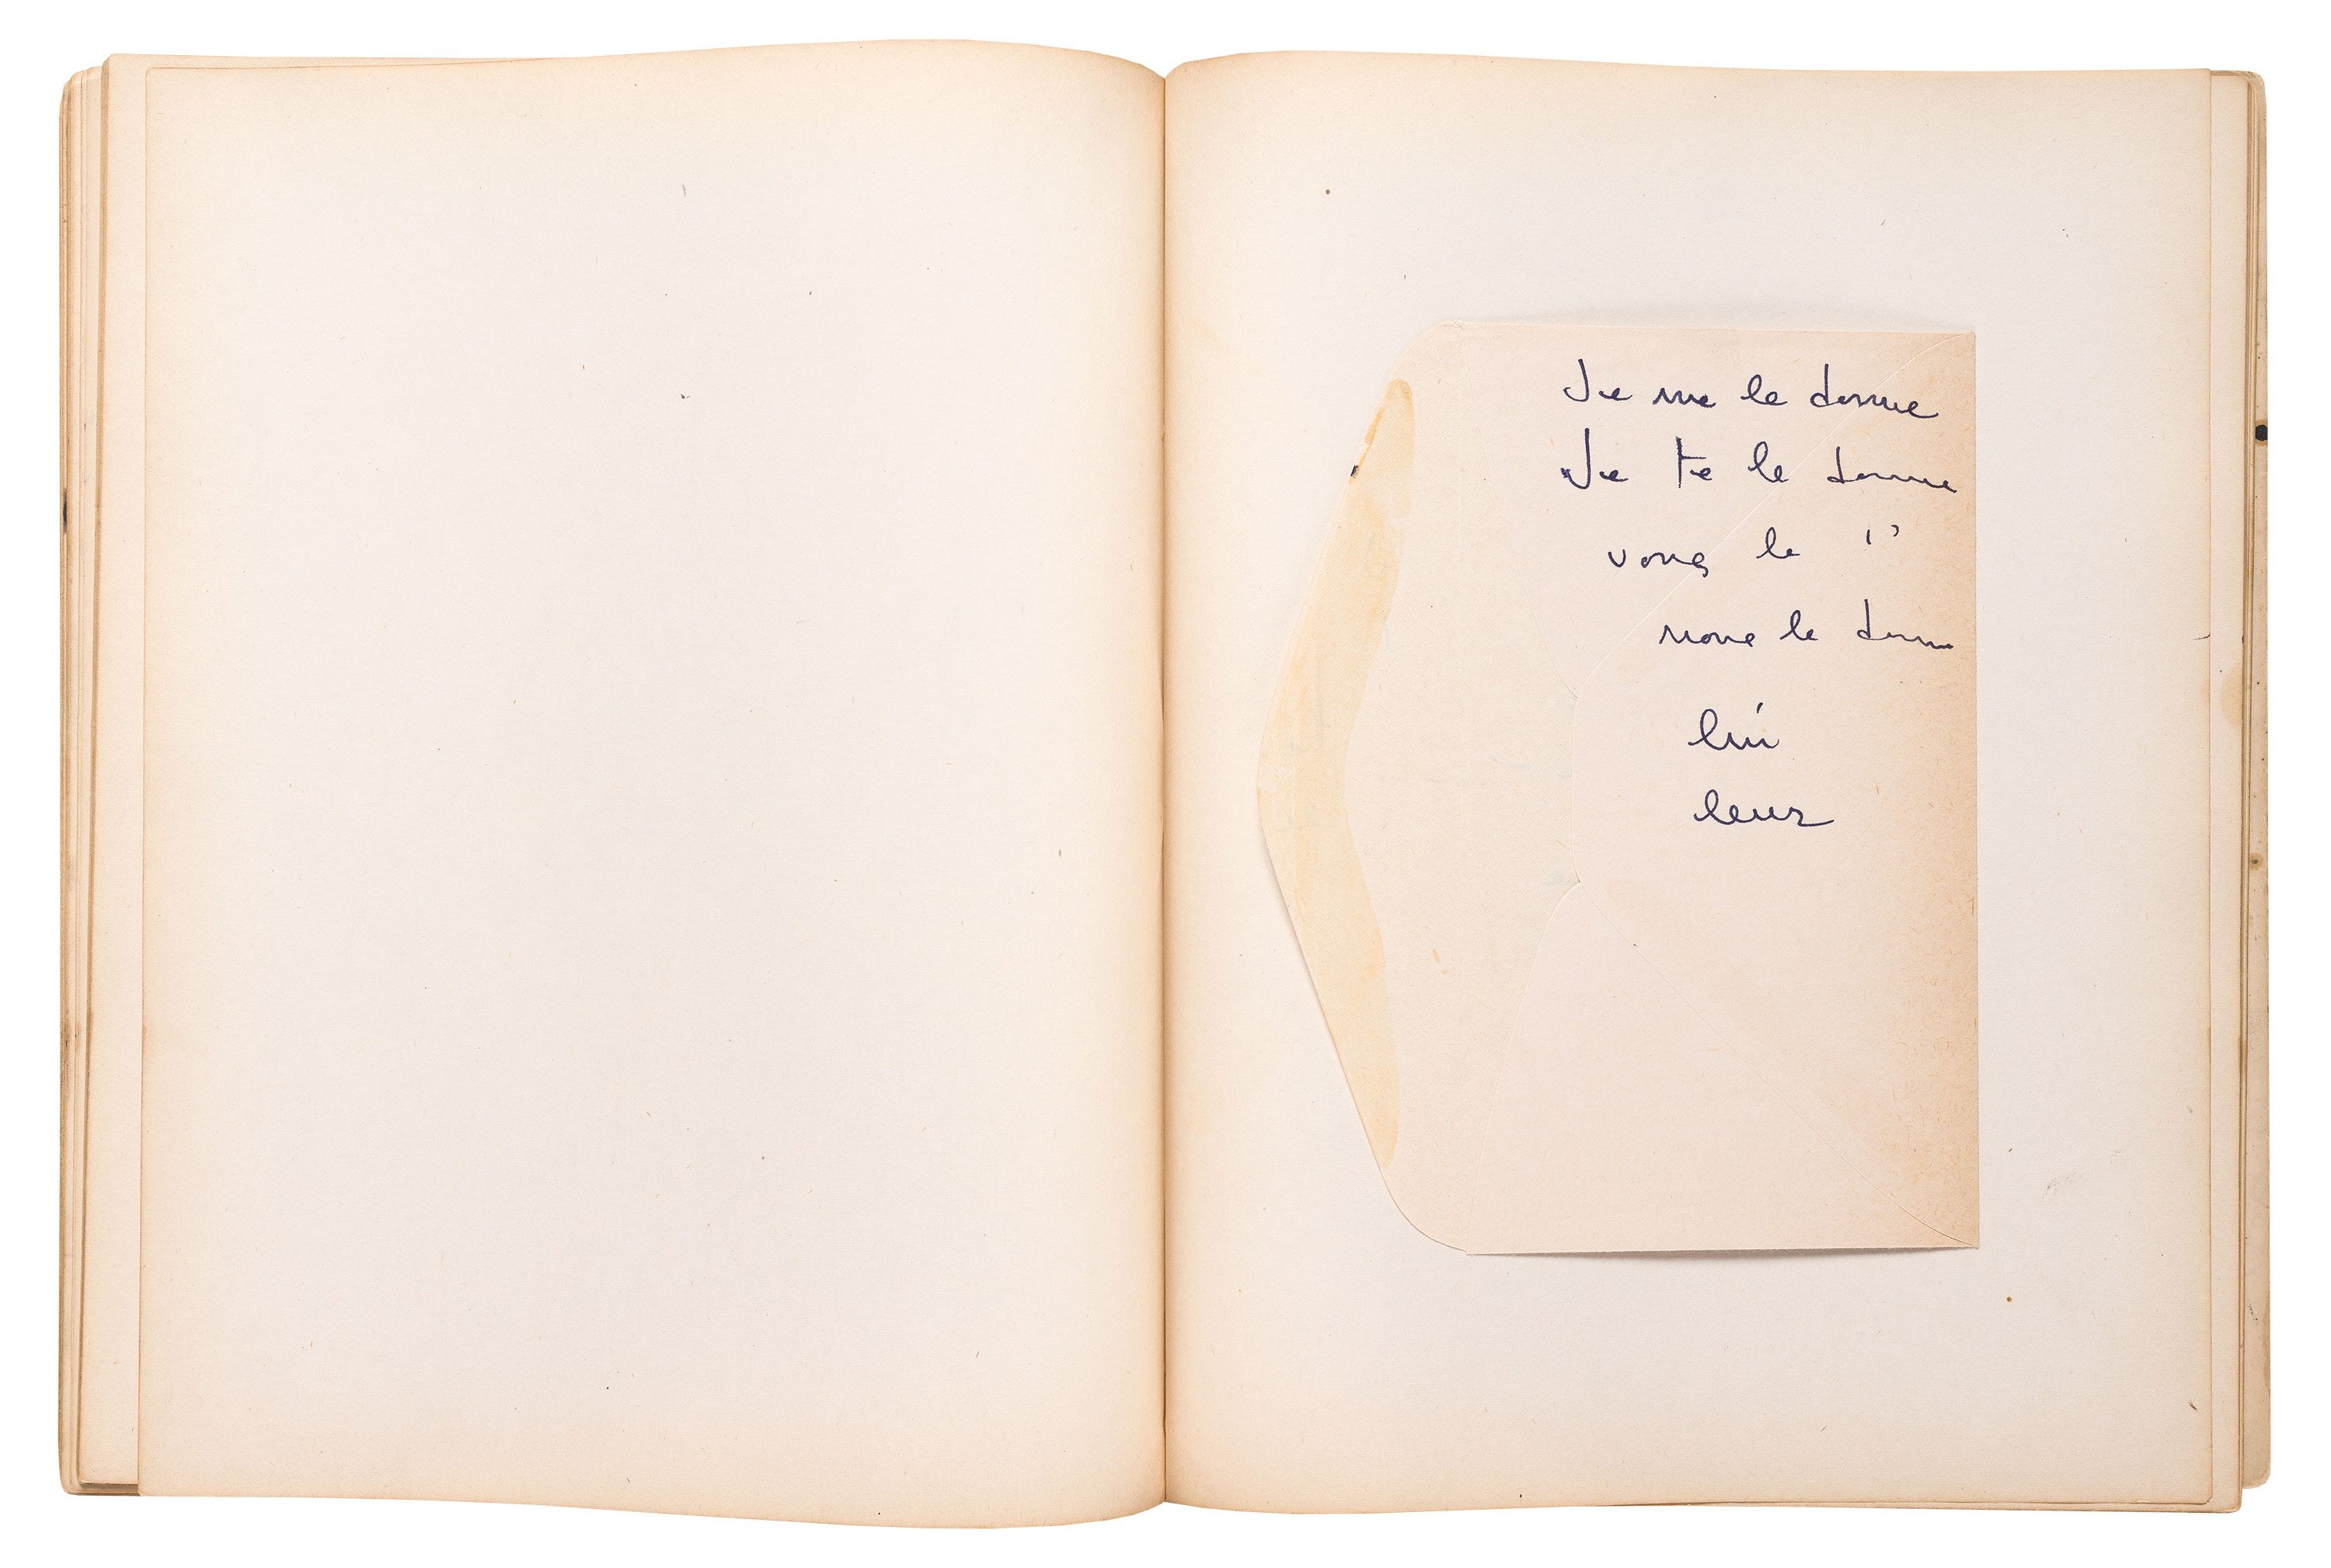 Je me le donne
Je te le donne
vous le "
nous le donne
lui
leur